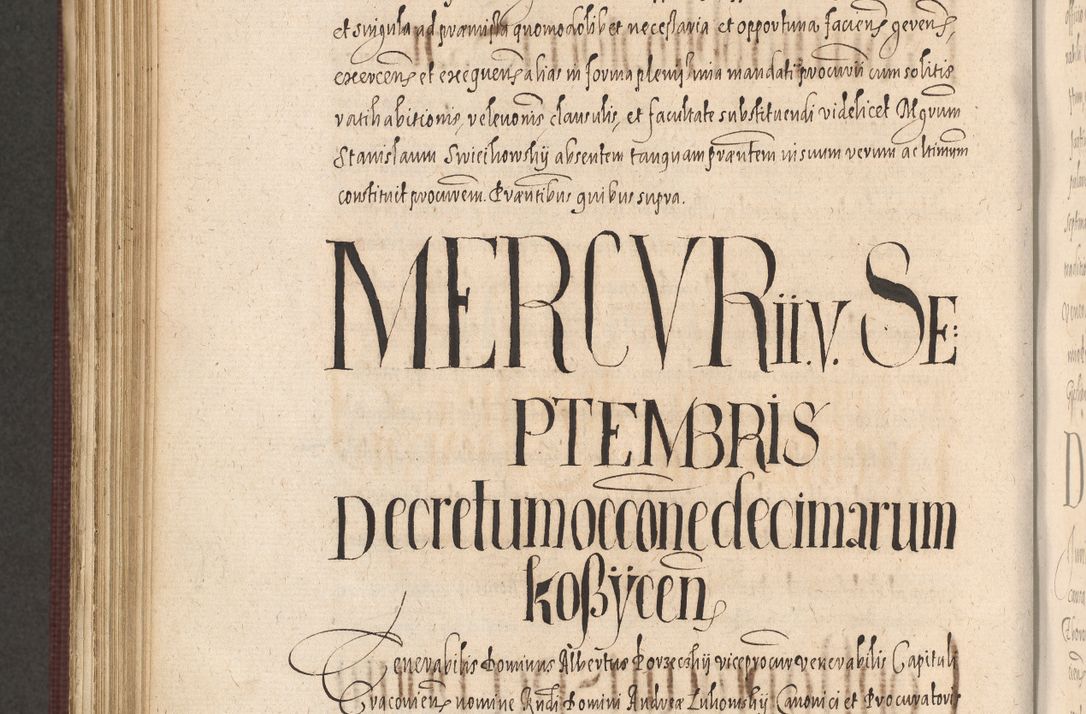 et singula ad præmissa quomodolibet necessaria et opportuna faciens gerens,
exercens et exequens alias in forma plenissima mandati procurii cum solitis
ratihabitionis, relevonis, clausulis, et facultate substituendi videlicet Mgrum
Stanislaum Swiechowskij absentem tanquam præntem
constituit procurem. Præntibus quibus supra.
MERCVRii.V. SE:
PTEMBRIS
Decretum occone decimarum
koßÿcen
Venerabilis Dominus Albertus Borzeczkij viceprocur venerabilis Capituli
Cracovien nomine Rndi Domini Andreæ Luhowskij Canonici et Procuratoris